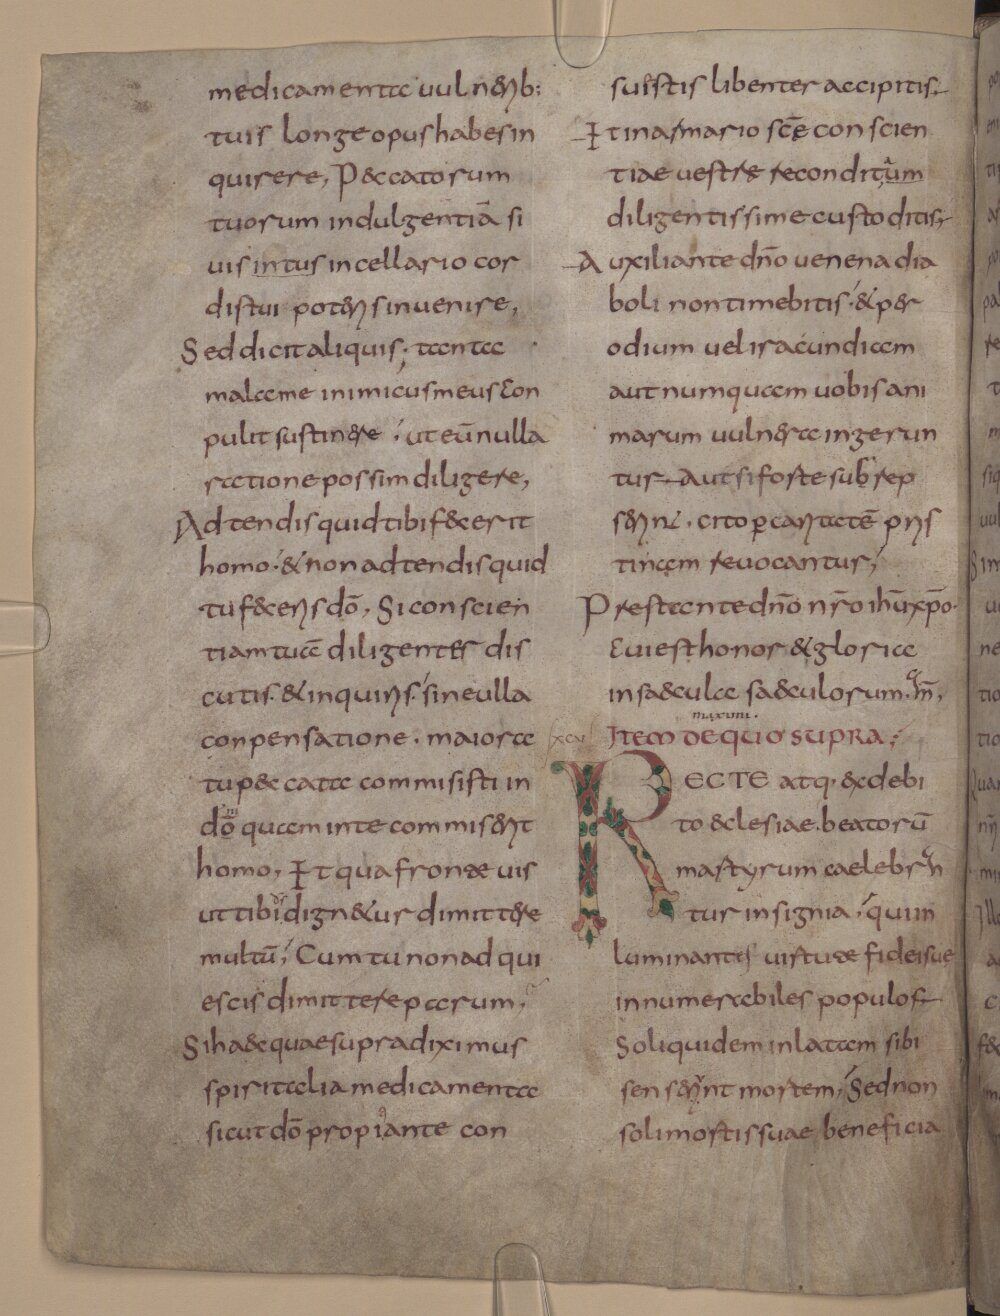 medicamenta uulnerib:
tuis longe opus habes in
quirere, Peccatorum
tuorum indulgentiā si
uis intus in cellario cor
dis tui poteris inuenire,
Sed dicit aliquis, tanta
mala me inimicus meus con
pulit sustinere, ut eū nulla
ratione possim diligere,
Adtendis quid tibi fecerit
homo, & non adtendis quid
tu feceris dō, Si conscien
tiam tuā diligenter dis
cutis, & inquiris, sine ulla
conpensatione, maiora
tu peccata commisisti in
dō quam in te commiserit
homo, Et qua fronde uis
ut tibi dignetur dimittere
multū, Cum tu non ad qui
escis dimittere parum,
Si haec quae supra diximus
spiritalia medicamenta
sicut dō propiante con
suistis libenter accipitis,
Et in armario scē conscien
tiae uestre reconditum
diligentissime custoditis,
Auxiliante dn̄o uenena dia
boli non timebitis, & per
odium uel iracundiam
aut numquam uobis ani
marum uulnera ingerun
tur, Aut si forte subrep
serint, cito p caritatē pris
tinam reuocantur,
Prestante dn̄o nr̄o ih̄u xp̄o
Cui est honor & gloria
in saecula saeculorum, am̄,
maximi.
xcvi ITEM DE QUO SUPRA,
RECTE atq· & debi
to eclesiae, beatorū
martyrum caelebran
tur insignia, qui in
luminantes uirtute fidei sue
innumerabiles populos,
Soli quidem inlatam sibi
senserunt mortem, Sed non
soli mortis suae beneficia